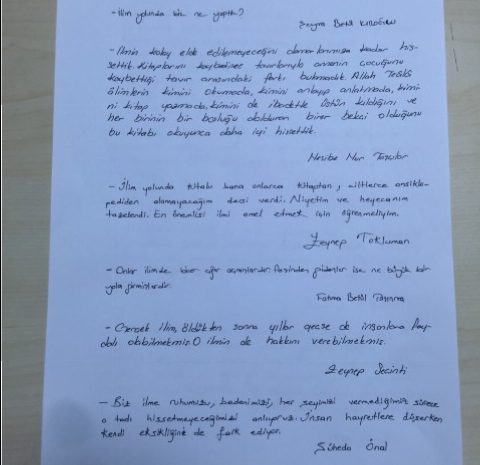 - İlim yolunda biz ne yaptık?
Zeynep Betül KIROĞLU
- İlmin kolay elde edilemeyeceğini damarlarımıza kadar his-
settik. Kitaplarını kaybedince tavırlarıyla annenin çocuğunu
kaybettiği tavır arasındaki farkı bulamadık. Allah Teâlâ
âlimlerin kimini okumada, kimini anlayıp anlatmada, kimi-
ni kitap yazmada, kimini de ibadette üstün kıldığını ve
her birinin bir boşluğu dolduran birer bekçi olduğunu
bu kitabı okuyunca daha iyi hissettik.
Nesibe Nur
- İlim yolunda kitabı bana onlarca kitaptan, ciltlerce ansiklo-
pediden alamayacağım dersi verdi. Niyetim ve heyecanım
tazelendi. En önemlisi ilmi amel etmek için öğrenmeliyim.
Zeynep Tokluman
- Onlar ilimde birer ise ne büyük bir
yola girmişlerdir.
Fatma Betül
- Gerçek ilim, öldükten sonra yıllar geçse de insanlara fay-
dalı olabilmekmiş. O ilmin de hakkını verebilmekmiş.
Zeynep Secinti
- Biz ilme ruhumuzu, bedenimizi, her şeyimizi vermediğimiz sürece
o tadı hissetmeyeceğimizi anlıyoruz. İnsan hayretlere düşerken
kendi eksikliğini de fark ediyor.
Süheda Önal